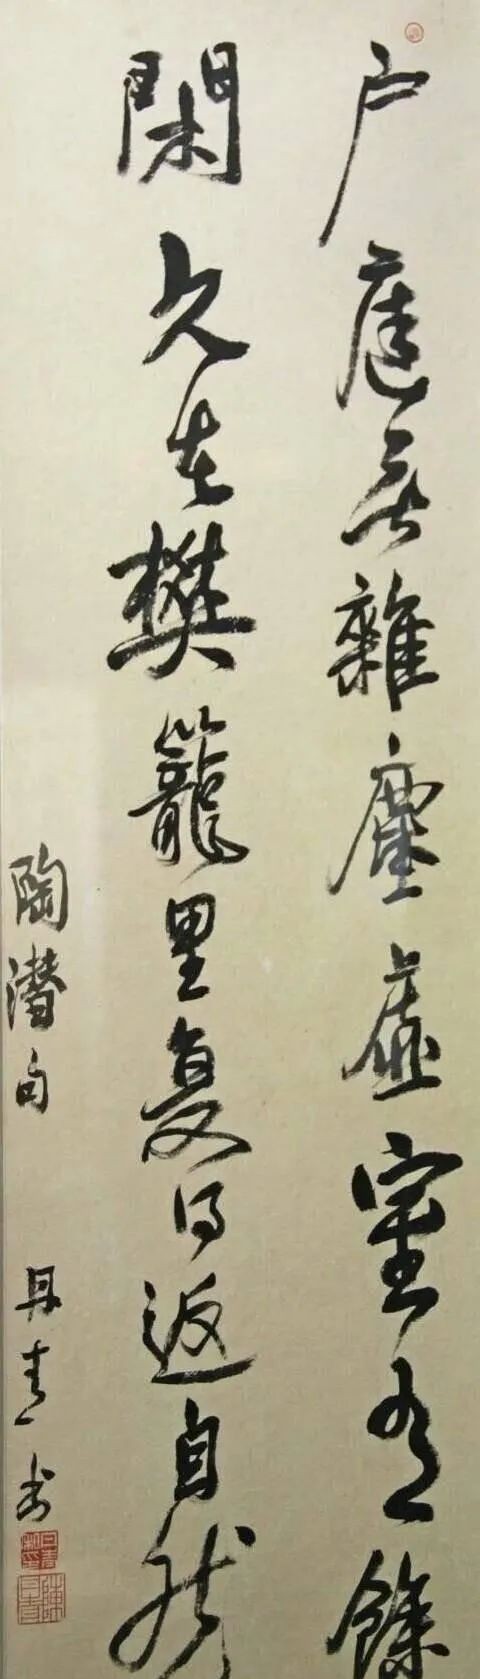 户庭无雜塵虛室有餘
閑久在樊籠里复得返自然
陶潛句
丹青書